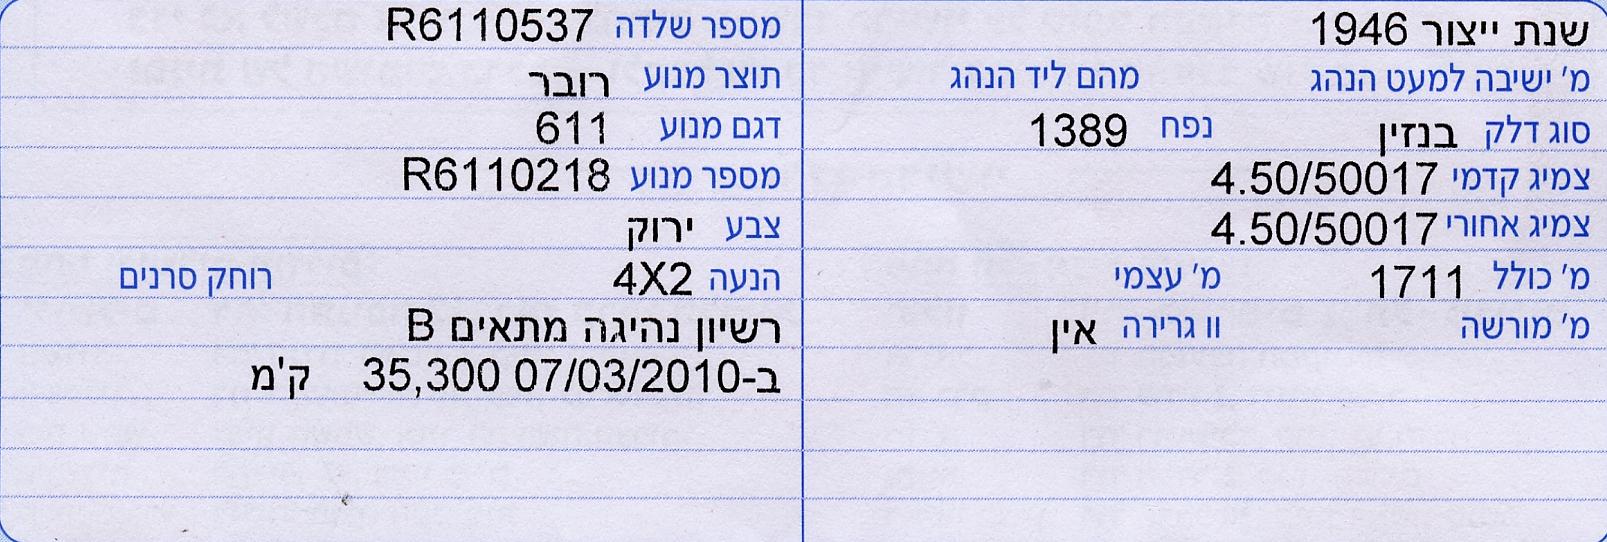 שנת ייצור 1946
מ' ישיבה למעט הנהג מהם ליד הנהג
סוג דלק בנזין נפח 1389
צמיג קדמי 4.50/50017
צמיג אחורי 4.50/50017
מ' כולל 1711 מ' עצמי
מ' מורשה וו גרירה אין
מספר שלדה R6110537
תוצר מנוע רובר
דגם מנוע 611
מספר מנוע R6110218
צבע ירוק
הנעה 4X2 רוחק סרנים
רשיון נהיגה מתאים B
ב-07/03/2010 35,300 ק'מ